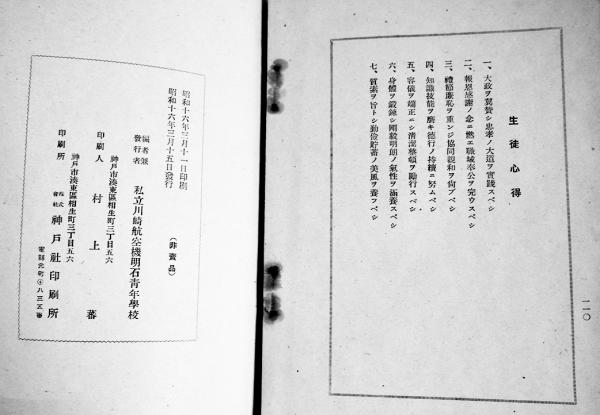 生徒心得
一、大政ヲ翼賛シ忠孝ノ大道ヲ實踐スベシ
二、報恩感謝ノ念ニ燃エ職域奉公ヲ完ウスベシ
三、禮節廉恥ヲ重ンジ協同親和ヲ尙ブベシ
四、知識技能ヲ磨キ德行ノ持續ニ努ムベシ
五、容儀ヲ端正ニシ淸潔整頓ヲ勵行スベシ
六、身體ヲ鍛鍊シ剛毅明朗ノ氣性ヲ涵養スベシ
七、質素ヲ旨トシ勤儉貯蓄ノ美風ヲ養フベシ
一一〇
昭和十六年三月十一日印刷
昭和十六年三月十五日發行
(非賣品)
編者兼發行者 私立川崎航空機明石靑年學校
神戸市湊東區相生町三丁目五六
印刷人 村上蕃
神戸市湊東區相生町三丁目五六
印刷所 株式會社 神戸社印刷所
電話元町④八三五番